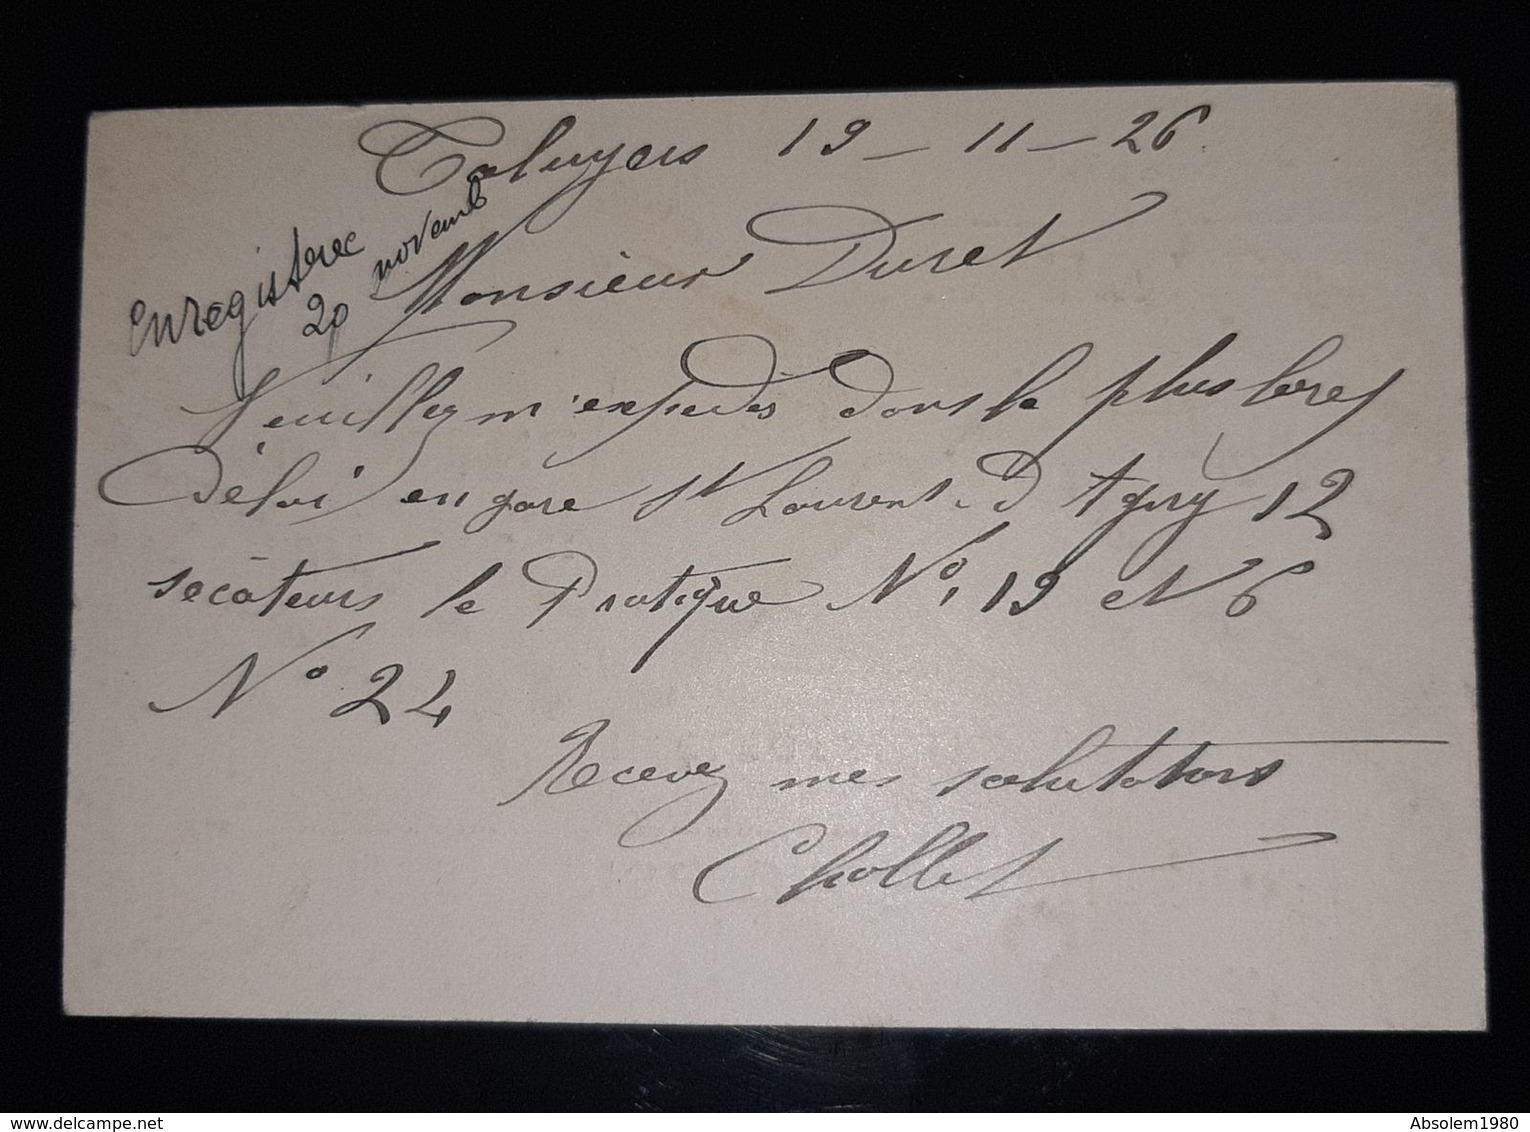 Taluyers 19 - 11 - 26.
Enregistree
20 novemb
Monsieur Duret
Veuillez m'expedés dans le plus bref
Délai en gare St Laurent-D Agny 12
secâteurs le Pratique No, 19 et 6
No 24
Recevez mes salutations
Chollet
Absolem1980